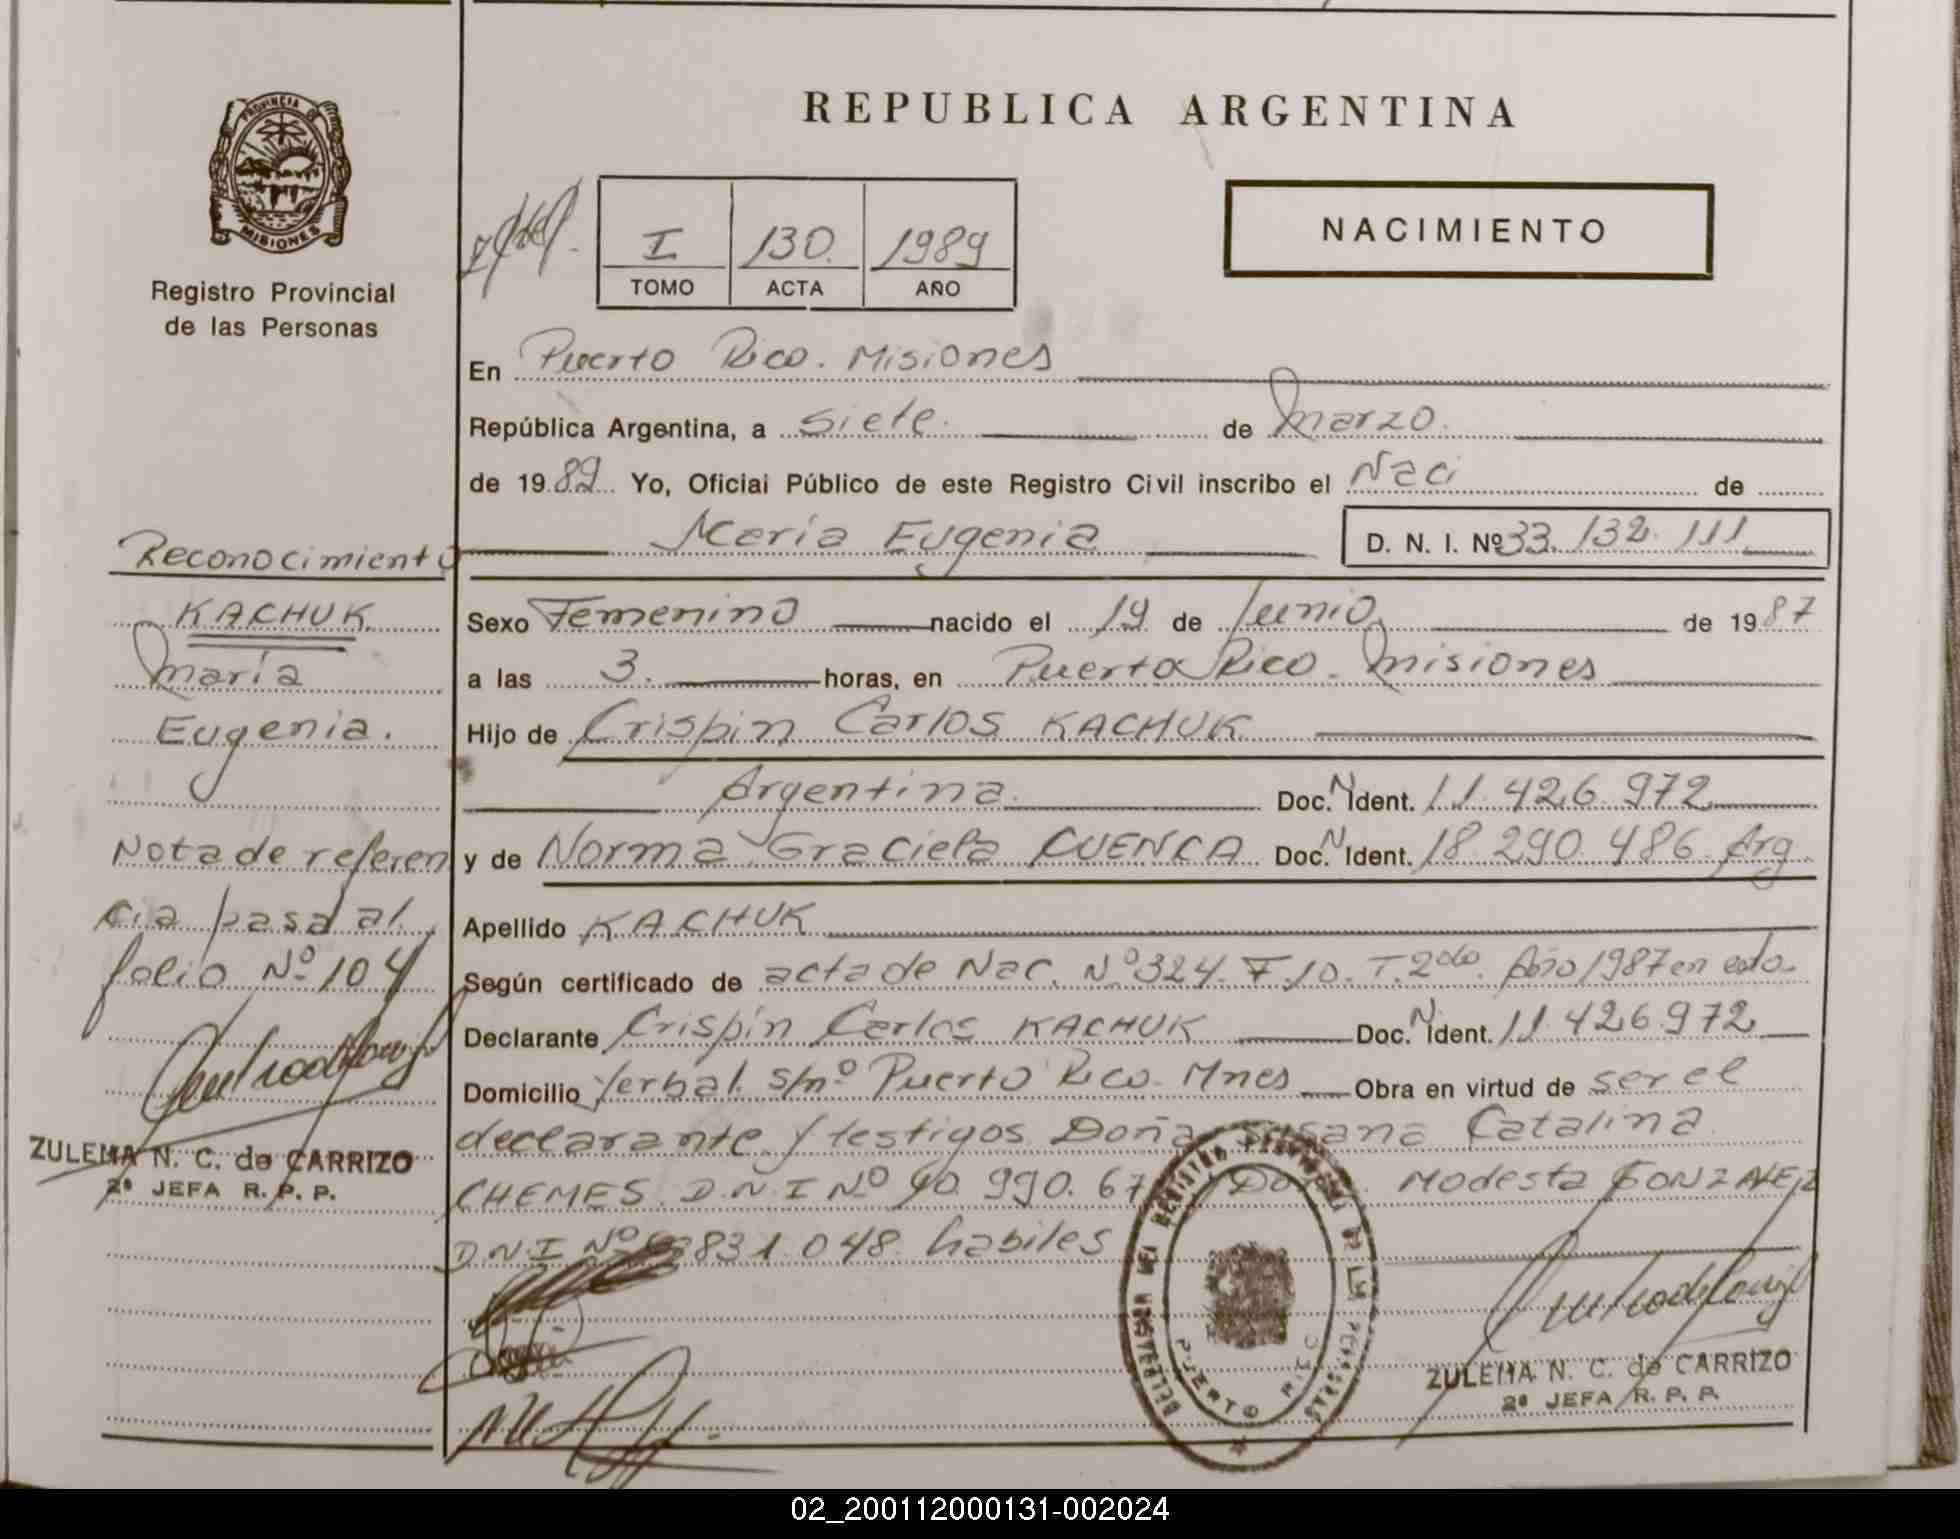 REPUBLICA ARGENTINA
PROVINCIA
MISIONES
Registro Provincial
de las Personas
I 130. 1989
TOMO ACTA AÑO
NACIMIENTO
En Puerto Rico. Misiones
República Argentina, a siete. de Marzo.
de 1989 Yo, Oficial Público de este Registro Civil inscribo el Naci de
María Eugenia D. N. I. Nº 33.132.111
Sexo Femenino nacido el 19 de Junio. de 1987
a las 3. horas, en Puerto Rico. Misiones
Hijo de Crispin Carlos KACHUK
Argentina. Doc. N Ident. 11.426.972
y de Norma Graciela CUENCA Doc. N Ident. 18.290.486. Arg.
Apellido KACHUK
Según certificado de acta de Nac. Nº324. F.10. T.2do. Año 1987 en
Declarante Crispín Carlos KACHUK Doc. N Ident. 11.426.972
Domicilio Yerbal. s/nº Puerto Rico. Mnes Obra en virtud de ser el
declarante y testigos Doña Susana Catalina
CHEMES. D.N.I Nº 990.67 Modesta GONZALEZ
D.N.I Nº 831.048 habiles
Reconocimiento
KACHUK
María
Eugenia.
Nota de referen
cia pasa al
folio Nº 104
ZULEMA N. C. de CARRIZO
2ª JEFA R. P. P.
DELEGACION DEL REGISTRO PROVINCIAL DE LAS PERSONAS
PUERTO RICO
ZULEMA N. C. de CARRIZO
2ª JEFA R. P. P.
02_200112000131-002024